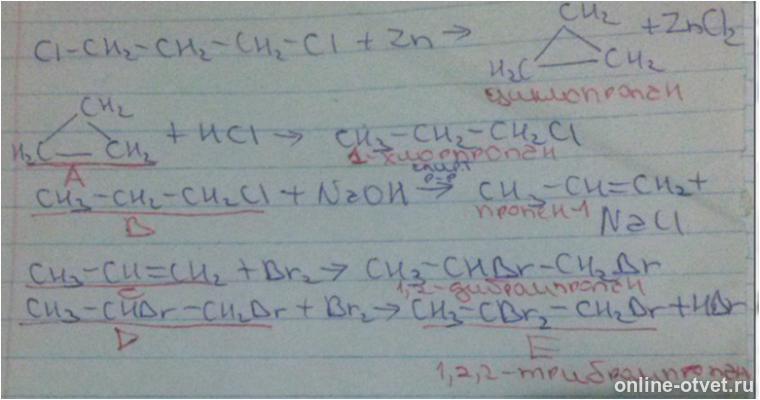 Cl-CH₂-CH₂-CH₂-Cl + Zn →
CH₂
H₂C CH₂
+ ZnCl₂
циклопропан
CH₂
H₂C CH₂
A
+ HCl → CH₃-CH₂-CH₂Cl
1-хлорпропан
CH₃-CH₂-CH₂Cl + NaOH → CH₃-CH=CH₂ +
спирт
р-р
B
пропен-1
NaCl
CH₃-CH=CH₂ + Br₂ → CH₃-CHBr-CH₂Br
C
1,2-дибромпропан
CH₃-CHBr-CH₂Br + Br₂ → CH₃-CBr₂-CH₂Br + HBr
D
E
1,2,2-трибромпропан
online-otvet.ru